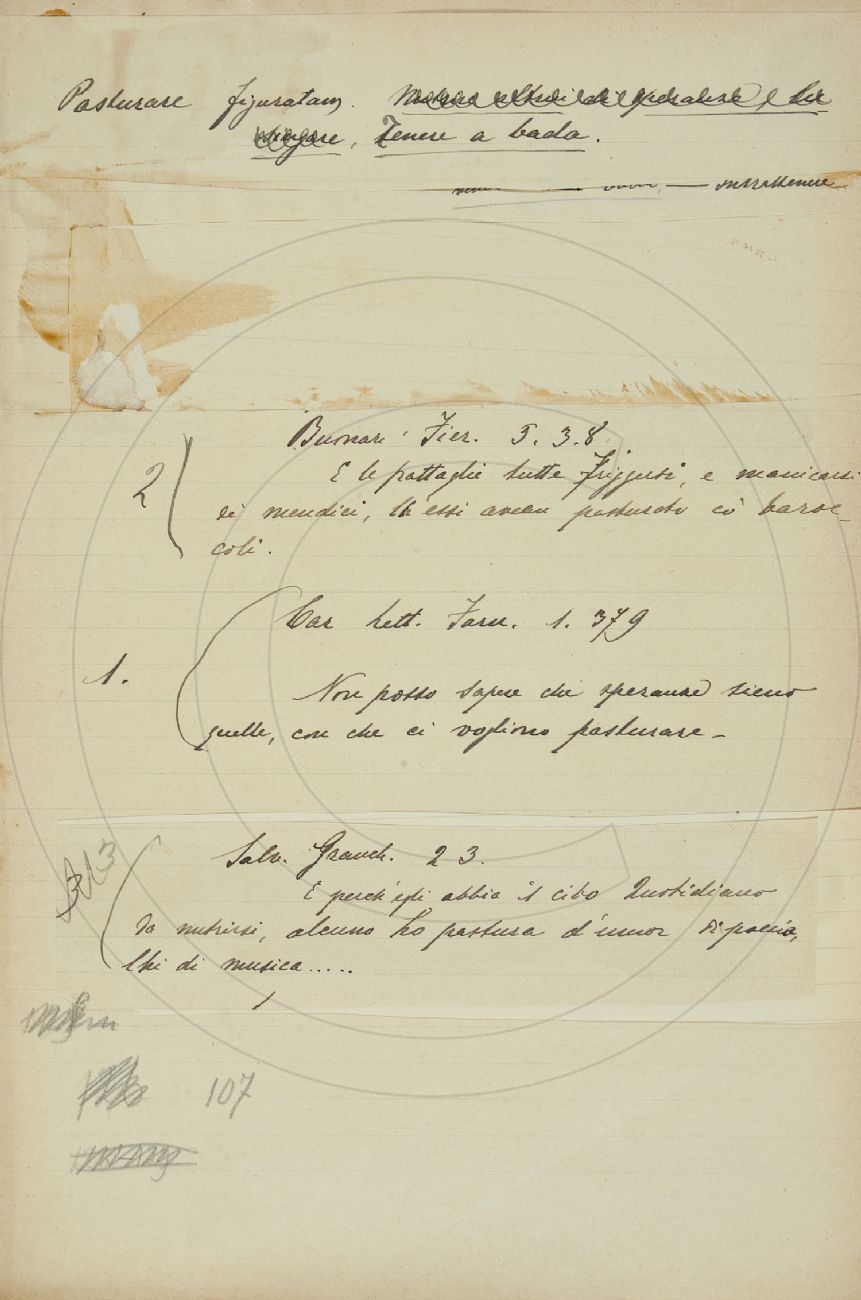 Pasturare figuratam.
, Tenere a bada.
intrattenere
Buonar. Fier. 3. 3. 8.
2
E le frattaglie tutte friggersi, e manicarsi
dei mendici, ch'essi avean pasturato co' baroc-
coli.
Car. Lett. Farn. 1. 379
1.
Non posso sapere che speranze sieno
quelle, con che ci vogliono pasturare -
3
Salv. Granch. 2 3.
E perch'egli abbia il cibo quotidiano
da nutrirsi, alcuno ho pastura d'umor di poesia,
Chi di musica.....
107